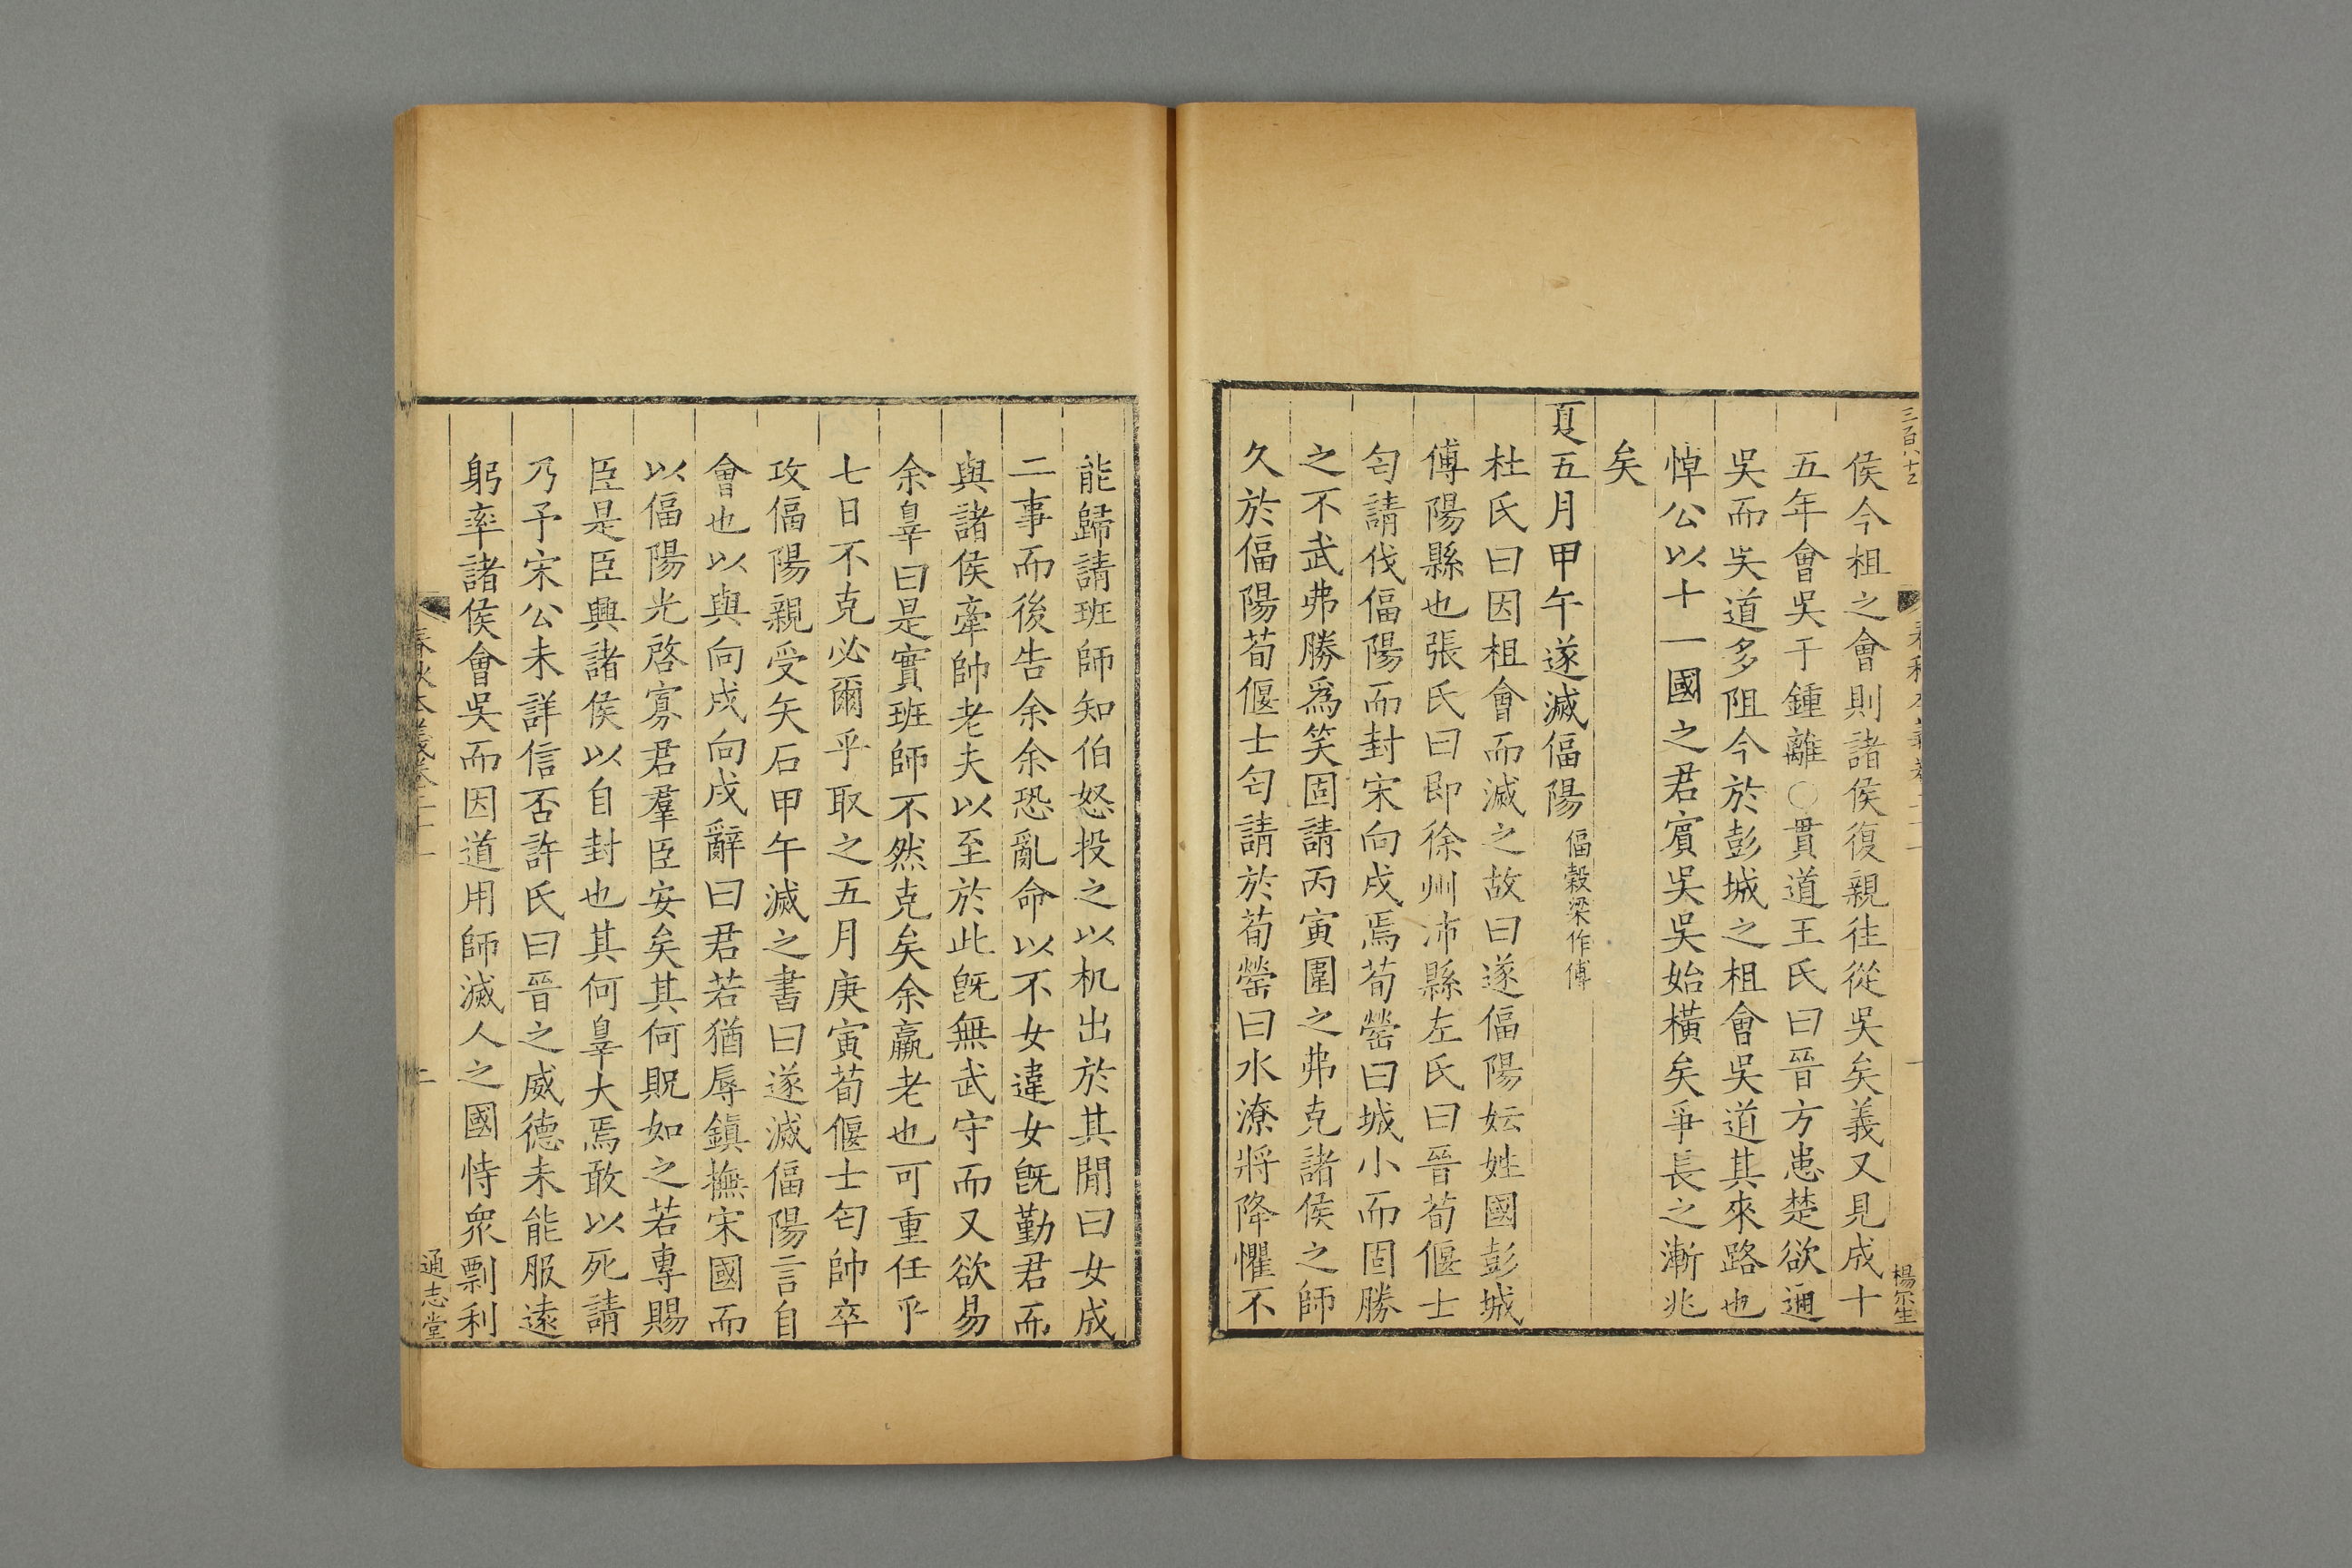 三百八十三
楊尒生
侯今柤之會則諸侯復親往從吳矣義又見成十
五年會吳于鍾離○貫道王氏曰晉方患楚欲通
吳而吳道多阻今於彭城之柤會吳道其來路也
悼公以十一國之君賓吳吳始橫矣爭長之漸兆
矣
夏五月甲午遂滅偪陽偪穀梁作傅
杜氏曰因柤會而滅之故曰遂偪陽妘姓國彭城
傅陽縣也張氏曰即徐州沛縣左氏曰晉荀偃士
匄請伐偪陽而封宋向戌焉荀罃曰城小而固勝
之不武弗勝爲笑固請丙寅圍之弗克諸侯之師
久於偪陽荀偃士匄請於荀罃曰水潦將降懼不
能歸請班師知伯怒投之以机出於其閒曰女成
二事而後告余余恐亂命以不女違女旣勤君而
與諸侯牽帥老夫以至於此旣無武守而又欲易
余辠曰是實班師不然克矣余羸老也可重任乎
七日不克必爾乎取之五月庚寅荀偃士匄帥卒
攻偪陽親受矢石甲午滅之書曰遂滅偪陽言自
會也以與向戌向戌辭曰君若猶辱鎮撫宋國而
以偪陽光啓寡君羣臣安矣其何貺如之若專賜
臣是臣興諸侯以自封也其何辠大焉敢以死請
乃予宋公未詳信否許氏曰晉之威德未能服遠
躬率諸侯會吳而因道用師滅人之國恃衆剽利
春秋本義卷二十一
二
通志堂